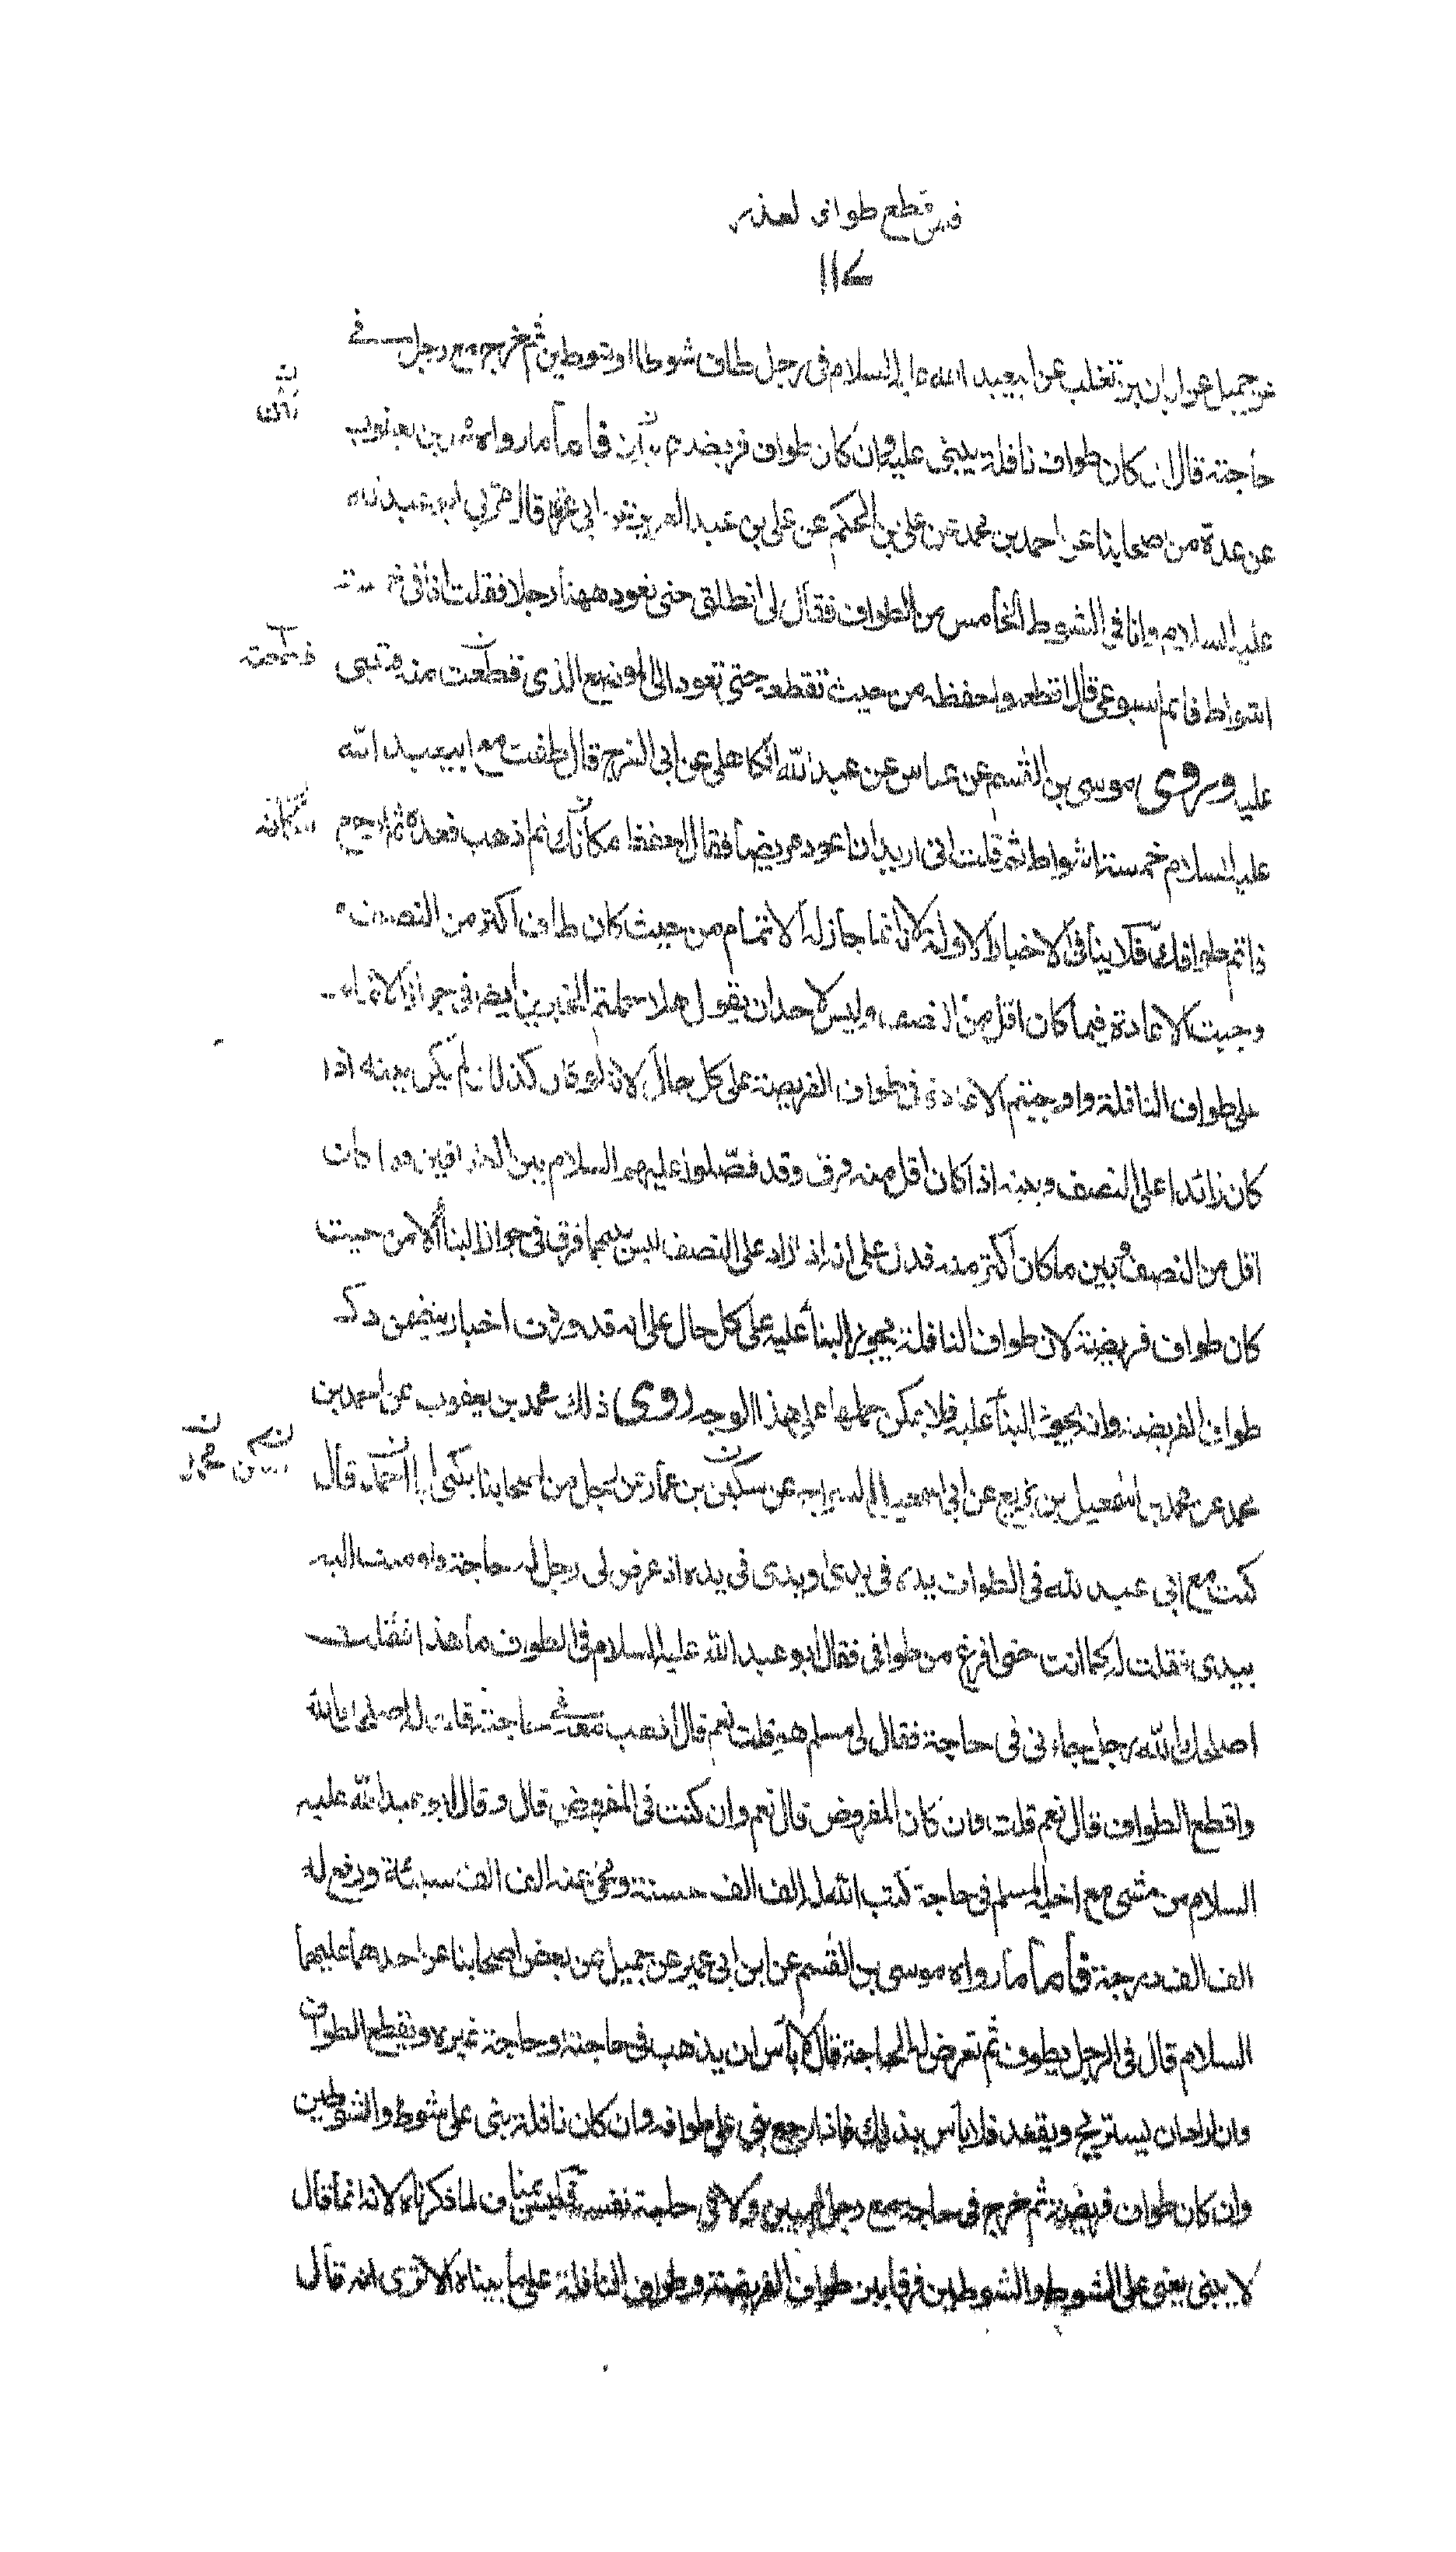 فيمن قطع طوافه لعذر
١١٤
عن جميل عن ابان بن تغلب عن ابيعبد الله عليه السلام فى رجل طاف شوطا او شوطين ثم خرج مع رجل فى
حاجته قال ان كان طواف نافلة يبنى عليه وان كان طواف فريضة لم يبن فاما ما رواه محمد بن يعقوب
عن عدة من اصحابنا عن احمد بن محمد عن على بن الحكم عن على بن عبد العزيز عن ابى عزة قال مر بى ابو عبد الله
عليه السلام وانا فى الشوط الخامس من الطواف فقال لى انطلق حتى نعود ههنا رجلا فقلت انا فى خمسة
اشواط فاتم اسبوعى قال اقطعه واحفظه من حيث تقطعه حتى تعود الى الموضع الذى قطعت منه فتبنى
عليه وروى موسى بن القسم عن عباس عن عبد الله الكاهلى عن ابى الفرج قال طفت مع ابيعبد الله
عليه السلام خمسة اشواط ثم قلت انى اريد ان اعود مريضا فقال احفظ مكانك ثم اذهب فعده ثم ارجع
فاتم طوافك فلا ينافى الاخبار الاولة لانه انما جاز له الاتمام من حيث كان طاف اكثر من النصف و
وجبت الاعادة فيما كان اقل من النصف وليس لاحد ان يقول هلا حملتم الخبرين ايضا فى جواز الاتمام
على طواف النافلة واوجبتم الاعادة فى طواف الفريضة على كل حال لانه لو كان كذلك لم يكن بينه اذا
كان زائدا على النصف وبينه اذا كان اقل منه فرق وقد فصلوا عليهم السلام بين الطوافين وما كان
اقل من النصف وبين ما كان اكثر منه فدل على انه اذا زاد على النصف ليس بينهما فرق فى جواز البناء الا من حيث
كان طواف فريضة لان طواف النافلة يجوز البناء عليه على كل حال على انه قد وردت اخبار يتضمن ذكر
طواف الفريضة وانه يجوز البناء عليه فلا يمكن حملها على هذا الوجه روى ذلك محمد بن يعقوب عن احمد بن
محمد عن محمد بن اسمعيل بن بزيع عن ابى اسمعيل السراج عن سكين بن عمار عن رجل من اصحابنا يكنى ابا احمد قال
كنت مع ابى عبد الله فى الطواف يده فى يدى او يدى فى يده اذ عرض لى رجل له حاجة فاومات اليه
بيدى فقلت له كما انت حتى افرغ من طوافى فقال ابو عبد الله عليه السلام فى الطواف ما هذا فقلت
اصلحك الله رجل جاءنى فى حاجة فقال لى مسلم هو قلت نعم قال اذهب معه فى حاجته قلت له اصلحك الله
واقطع الطواف قال نعم قلت وان كان المفروض قال نعم وان كنت فى المفروض قال وقال ابو عبد الله عليه
السلام من مشى مع اخيه المسلم فى حاجة كتب الله له الف الف حسنة ومحى عنه الف الف سيئة ورفع له
الف الف درجة فاما ما رواه موسى بن القسم عن ابن ابى عمير عن جميل عن بعض اصحابنا عن احدهما عليهما
السلام قال فى الرجل يطوف ثم تعرض له الحاجة قال لا باس ان يذهب فى حاجته او حاجة غيره ويقطع الطواف
وان اراد ان يستريح ويقعد فلا باس بذلك فاذا رجع بنى على طوافه وان كان نافلة بنى على شوط والشوطين
وان كان طواف فريضة ثم خرج فى حاجة مع رجل لم يبن ولا فى حاجة نفسه فليس بمناف لما ذكرناه لانه انما قال
لا يبنى يعنى على الشوط والشوطين فرقا بين طواف الفريضة وطواف النافلة على ما بيناه الا ترى انه قال